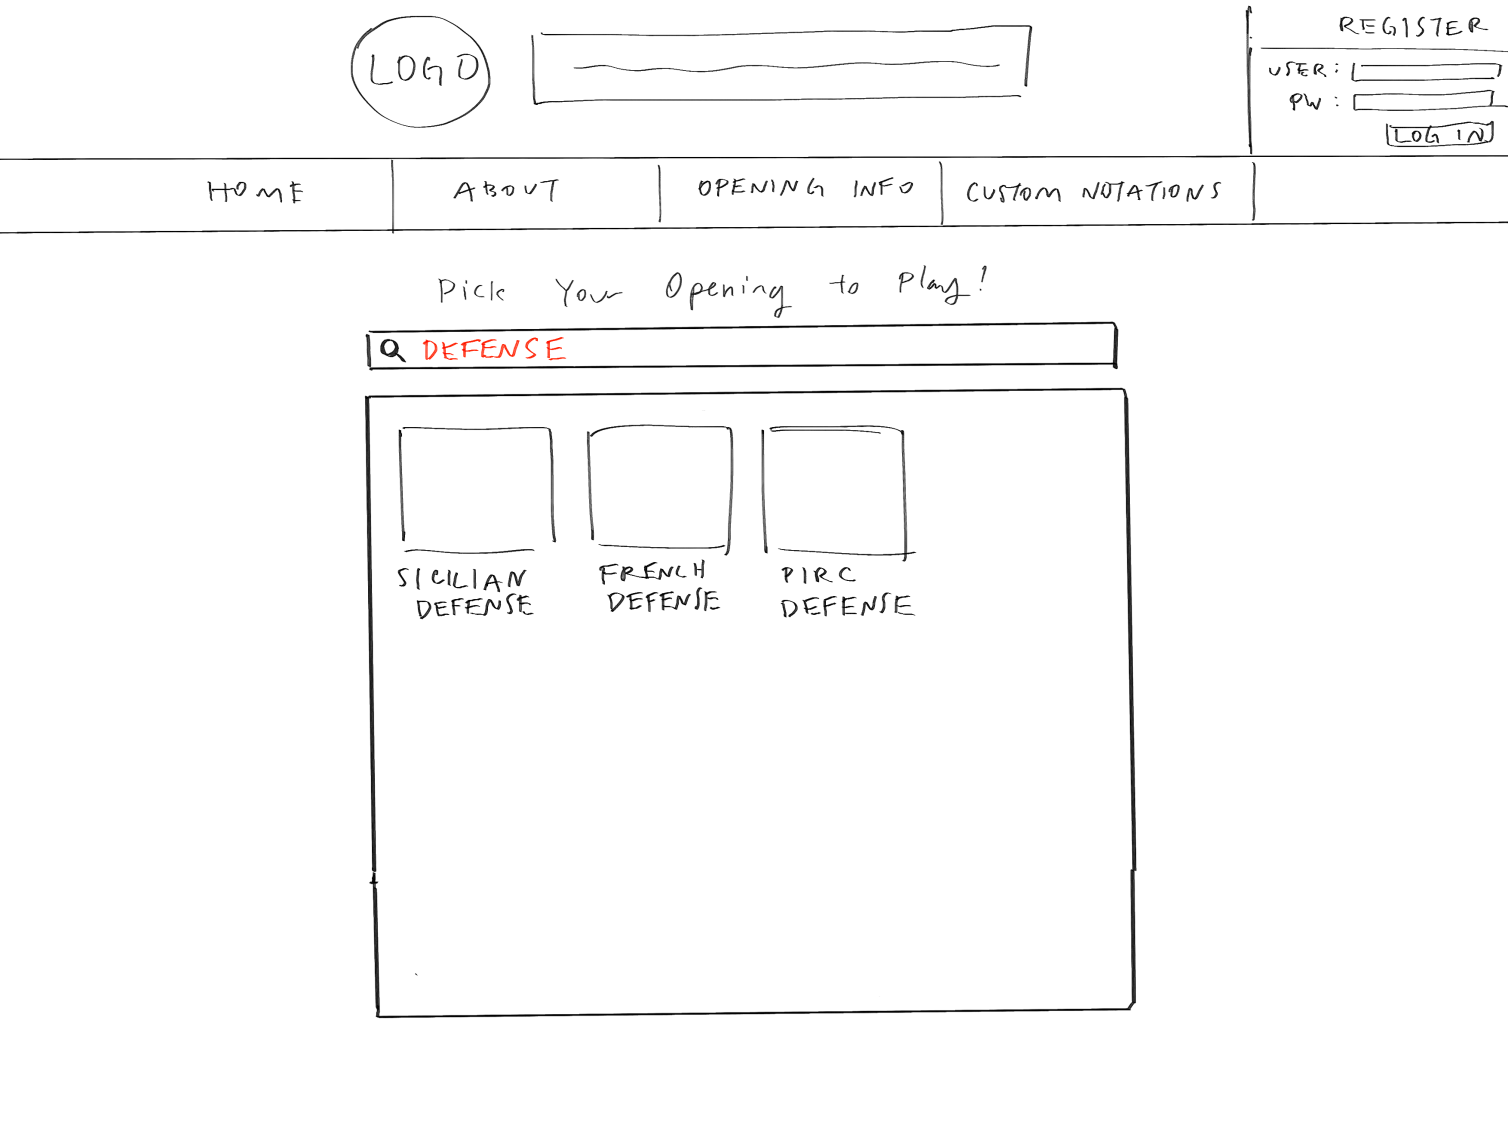 LOGO
REGISTER
USER:
PW:
LOG IN
HOME
ABOUT
OPENING INFO
CUSTOM NOTATIONS
Pick Your Opening to Play!
DEFENSE
SICILIAN
DEFENSE
FRENCH
DEFENSE
PIRC
DEFENSE